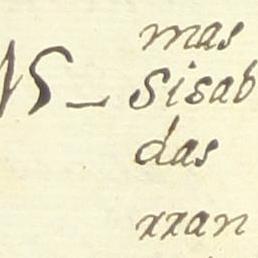 mas
NS_ Sisab
das
xxan